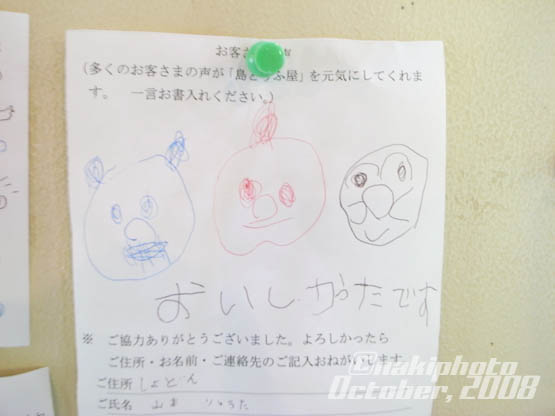 お客さ
(多くのお客さまの声が「島とうふ屋」を元気にしてくれま
す。 一言お書入れください。)
おいしかったです
※ ご協力ありがとうございました。よろしかったら
ご住所・お名前・ご連絡先のご記入おねがいします
ご住所
ご氏名
©hakiphoto
October, 2008